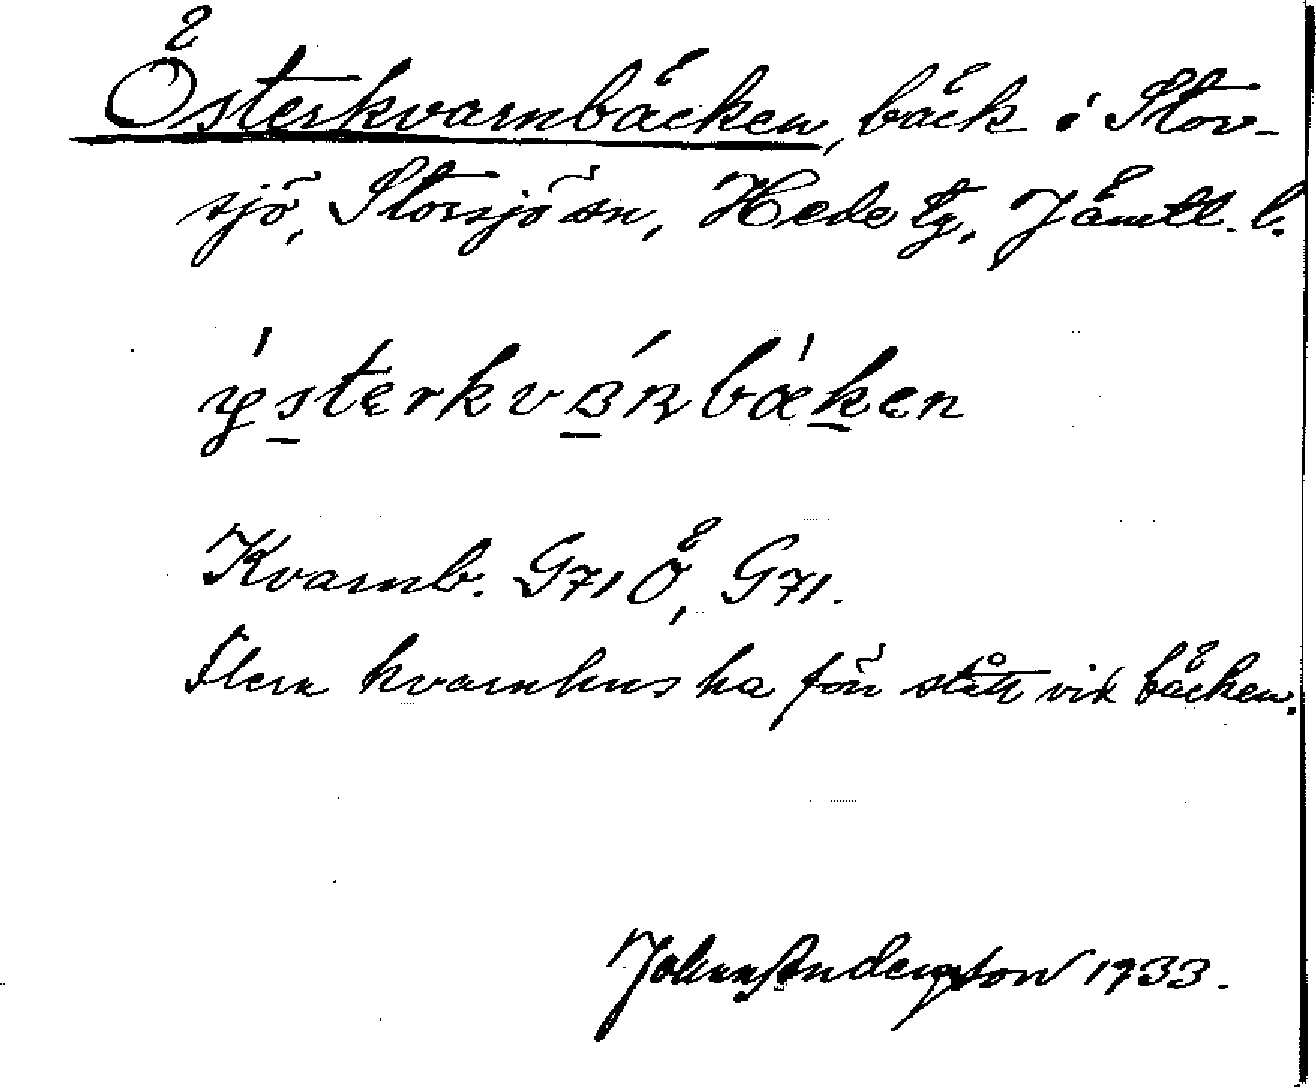 Österkvarnbäcken, bäck i Stor-
sjö, Storsjö sn, Hede tg, Jämtl. l.
Kvarnb. G71 Ö, G71.
Flera kvarnhus ha förr stått vid bäcken.
Johan Anderson 1933.